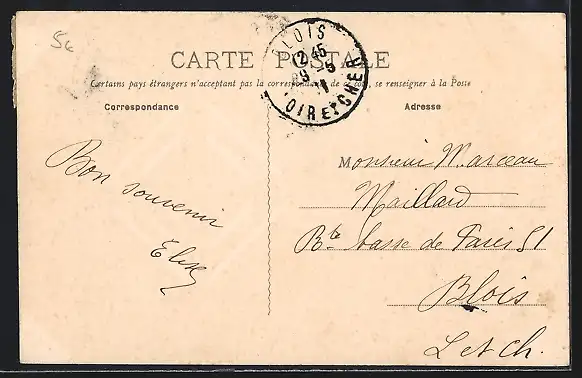 54
CARTE POSTALE
BLOIS
12 45
9 - 5
LOIR-ET-CHER
Certains pays étrangers n'acceptant pas la correspondance de ce côté, se renseigner à la Poste
Correspondance
Adresse
Bon souvenir
Monsieur Marceau
Maillard
Bte basse de Paris 51
Blois
L et Ch.